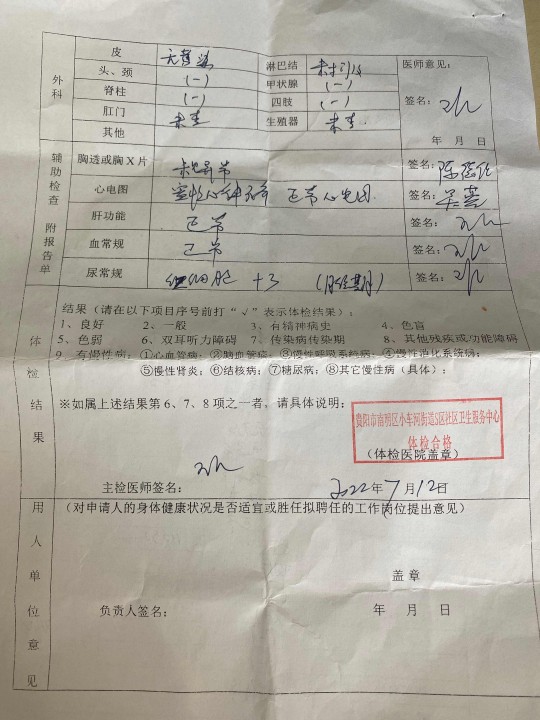 外科
皮 淋巴结 医师意见：
头、颈 (一) 甲状腺 (一)
脊柱 (一) 四肢 (一) 签名：
肛门 未查 生殖器 未查
其他 年 月 日
辅助检查 附报告单
胸透或胸X片 签名：
心电图 正常心电图 签名：
肝功能 正常 签名：
血常规 正常 签名：
尿常规 红细胞 +3 签名：
体检结果
结果（请在以下项目序号前打“√”表示体检结果）：
1、良好 2、一般 3、有精神病史 4、色盲
5、色弱 6、双耳听力障碍 7、传染病传染期 8、其他残疾或功能障碍
9、有慢性病：①心血管病；②脑血管病；③慢性呼吸系统病；④慢性消化系统病；
⑤慢性肾炎；⑥结核病；⑦糖尿病；⑧其它慢性病（具体）：
※如属上述结果第6、7、8项之一者，请具体说明：
贵阳市南明区小车河街道社区卫生服务中心
体检合格
（体检医院盖章）
主检医师签名： 2022年7月12日
用人单位意见
（对申请人的身体健康状况是否适宜或胜任拟聘任的工作岗位提出意见）
盖章
负责人签名： 年 月 日